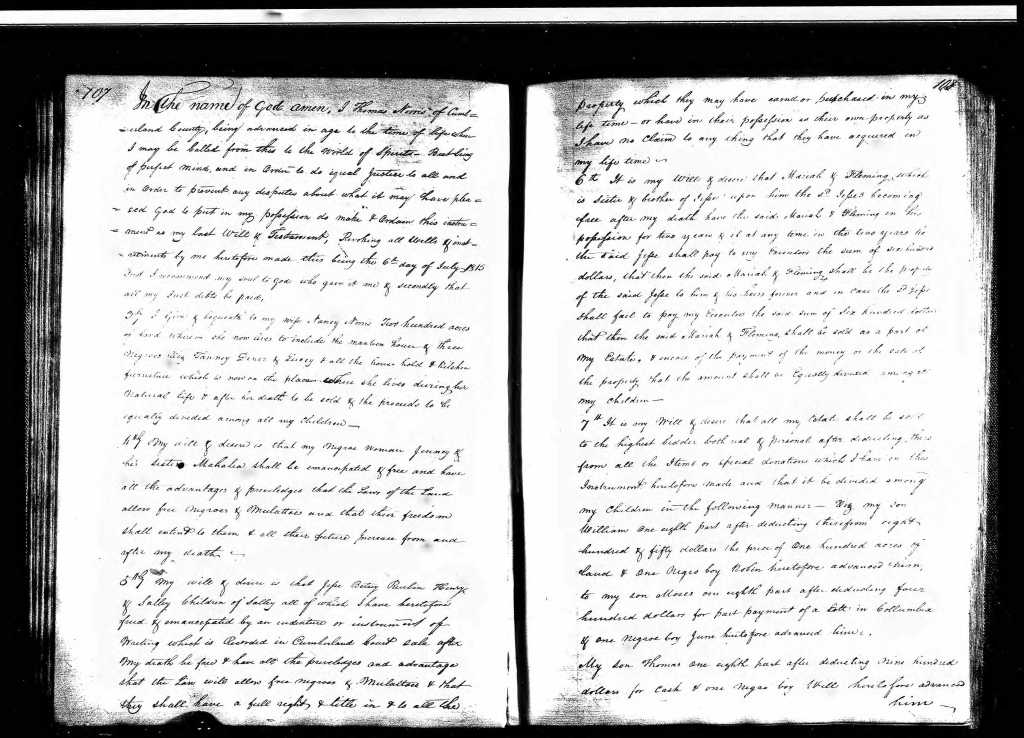 107
In the name of God amen, I Thomas Norris of Cum=
=erland County, being advanced in age to the time of life when
I may be called from this to the World of Spirits But being
of perfect mind, and in Order to do equal justice to all and
in Order to prevent any disputes about what it may have plea=
=sed God to put in my possession do make & Ordain this instru=
=ment as my last Will & Testament, Revoking all Wills & inst=
=ruments by me heretofore made this being the 6th day of July 1815
And I recommend my soul to God who gave it me & secondly that
all my Just debts be paid,
3rdly I Give & bequeath to my wife Nancy Norris Two hundred acres
of land where she now lives to include the mantion house & three
Negroes Fanney & all the house hold & Kitchen
furniture which is now on the place where she lives during her
Natural life & after her death to be sold & the proceeds to be
equally divided among all my Children —
4thly My will & desire is that my Negroe Woman Jenney &
his sister Mahalia shall be emancipated & free and have
all the advantages & priviledges that the Laws of the Land
allow free Negroes & Mulattoes and that their freedom
shall extend to them & all their future increase from and
after my death
5thly My will & desire is that Jesse Betsey Reuben Henry
& Salley Children of Salley all of which I have heretofore
freed & emancipated by an endenture or instrument of
Writing which is Recorded in Cumberland Court after
My death be free & have all the priviledges and advantage
that the Law will allow free negroes & Mulattoes & that
they shall have a full right & title in & to all the
108
Property which they may have earned or purchased in my
life time — or have in their possession as their own property as
I have no Claim to any thing that they have acquired in
my life time
6th It is my Will & desire that Mariah & Fleming, which
is sister & brother of Jesse upon him the sd. Jesse's becoming
free after my death have the said Mariah & Fleming in his
possession for two years & if at any time in the two years
the said Jesse shall pay to my Executors the sum of six hundred
dollars, that then the said Mariah & Fleming shall be the property
of the said Jesse to him & his heirs forever and in case the sd. Jesse
shall fail to pay my Executors the said sum of Six hundred dollars
that then the said Mariah & Fleming shall be sold as a part of
My Estate, & in case of the payment of the money or the sale of
the property that the amount shall be Equally divided amongst
my children —
7th It is my Will & desire that all my Estate shall be sold
to the highest bidder both real & personal after deducting
from all the Items or special donations which I have in this
Instrument heretofore made and that it be divided among
my Children in the following manner — my son
William one eighth part after deducting therefrom eight
hundred & fifty dollars the price of One hundred acres of
Land & One Negro boy Robin heretofore advanced him,
to my son Moses one eighth part after deducting four
hundred dollars for part payment of a Lott in Collumbia
& one Negroe boy June heretofore advanced him.
My son Thomas one eighth part after deducting Nine hundred
dollars for Cash & one negro boy Will heretofore advanced
him —